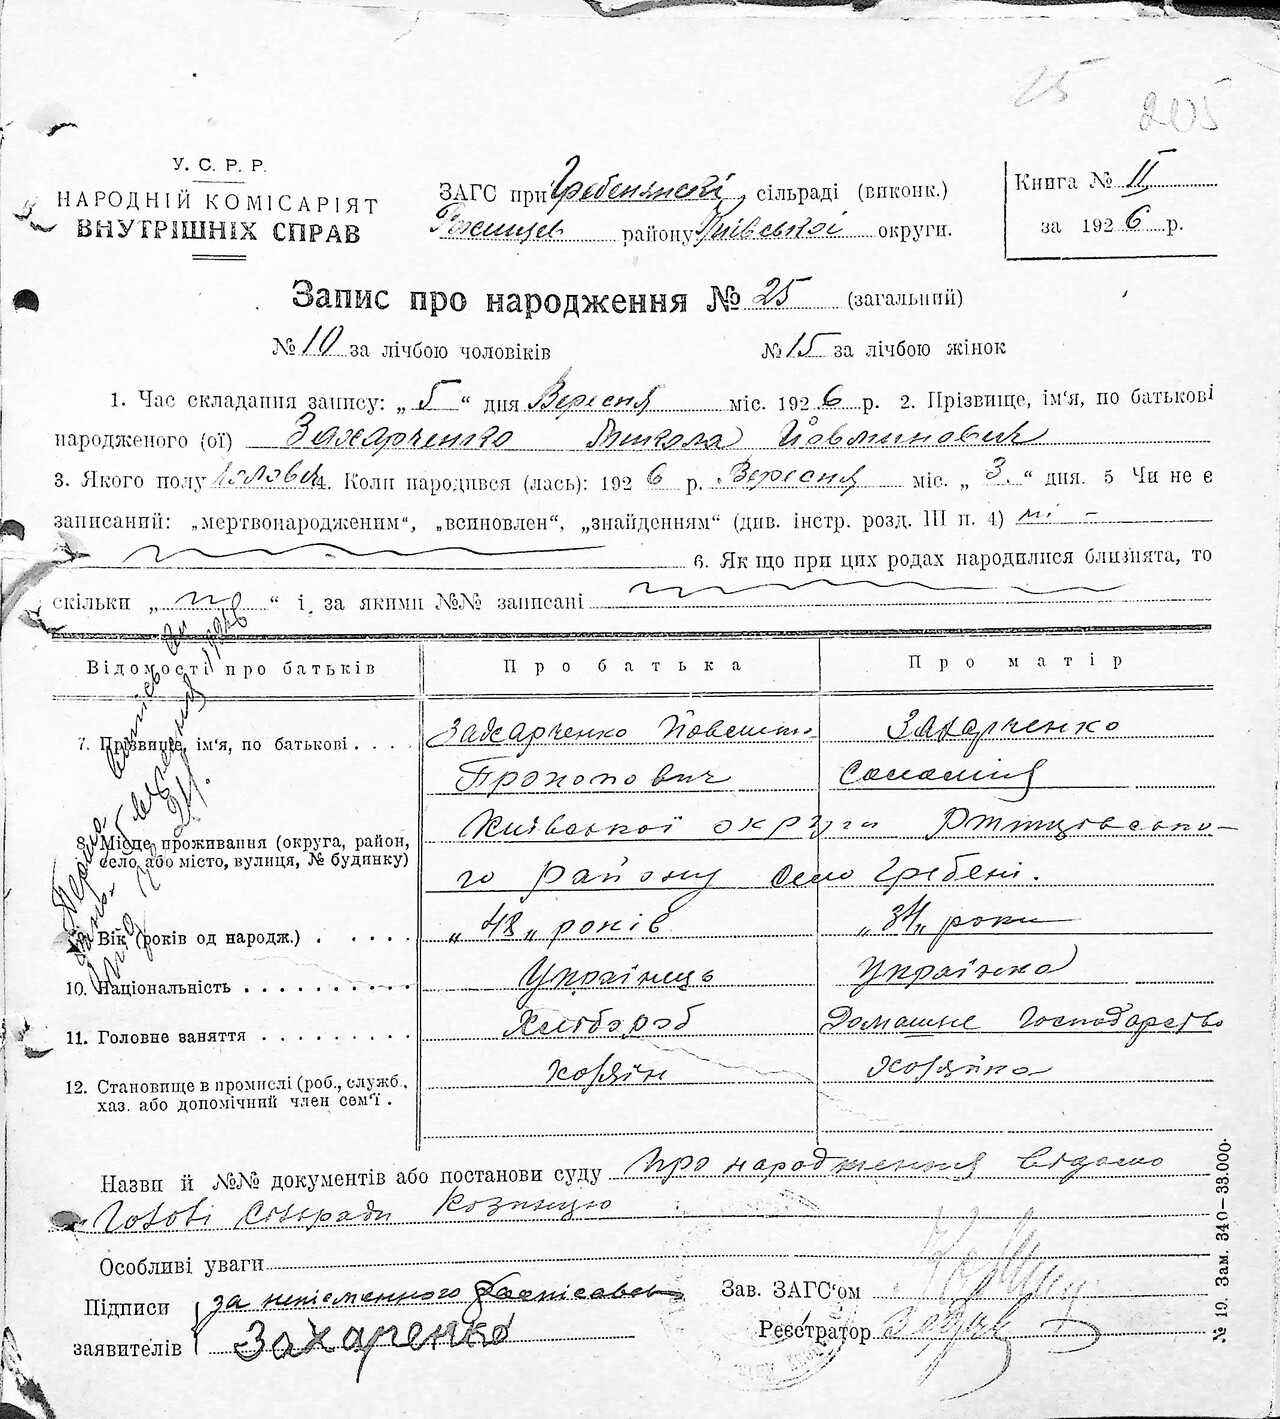 25
205
У. С. Р. Р.
НАРОДНІЙ КОМІСАРІЯТ
ВНУТРІШНІХ СПРАВ
ЗАГС при Гребенянскі, сільраді (виконк.)
району Київської округи.
Книга № II
за 1926 р.
Запис про народження № 25 (загальний)
№ 10 за лічбою чоловіків № 15 за лічбою жінок
1. Час складання запису: „ 5 “ дня Вересня міс. 1926 р. 2. Прізвище, ім'я, по батькові
народженого (ої) Захарченко Микола
3. Якого полу Чолович 4. Коли народився (лась): 1926 р. Вересня міс. „ 3. “ дня. 5 Чи не є
записаний: „мертвонародженим“, „всиновлен“, „знайденням“ (див. інстр. розд. III п. 4) ні -
6. Як що при цих родах народилися близнята, то
скільки „ “ і за якими №№ записані
Відомості про батьків
Про батька
Про матір
7. Прізвище, ім'я, по батькові . . . .
Захарченко
Прокопович
Захарченко
Соломія
8. Місце проживання (округа, район,
село або місто, вулиця, № будинку)
Київської округи
го району село Гребені.
9. Вік (років од народж.) . . . . .
„48„ років
„34„ роки
10. Національність . . . . . . . . . .
Українець
Українка
11. Головне заняття . . . . . . . . .
Хлібороб
Домашнє Господарство
12. Становище в промислі (роб., служб.,
хаз. або допомічний член сем'ї .
хозяїн
хозяйка
Назви й №№ документів або постанови суду Про народження відомо
Голові сільради Козинцю
Особливі уваги
Підписи
заявителів
за неписьменного расписавсь
Захаренко
Зав. ЗАГС'ом
Реєстратор
№ 19. Зам. 340—33.000.